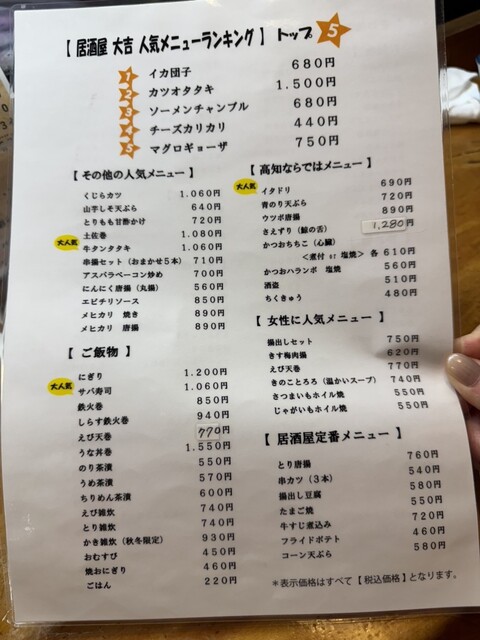 【 居酒屋 大吉 人気メニューランキング 】 トップ 5
1 イカ団子 680円
2 カツオタタキ 1.500円
3 ソーメンチャンプル 680円
4 チーズカリカリ 440円
5 マグロギョーザ 750円
【 その他の人気メニュー 】
くじらカツ 1.060円
山芋しそ天ぷら 640円
とりもも甘酢かけ 720円
土佐巻 1.080円
大人気 牛タンタタキ 1.060円
串揚セット（おまかせ5本） 710円
アスパラベーコン炒め 700円
にんにく唐揚（丸揚） 560円
エビチリソース 850円
メヒカリ 焼き 890円
メヒカリ 唐揚 890円
【 ご飯物 】
にぎり 1.200円
大人気 サバ寿司 1.060円
鉄火巻 850円
しらす鉄火巻 940円
えび天巻 770円
うな丼巻 1.550円
のり茶漬 550円
うめ茶漬 570円
ちりめん茶漬 600円
えび雑炊 740円
とり雑炊 740円
かき雑炊（秋冬限定） 930円
おむすび 450円
焼おにぎり 460円
ごはん 220円
【 高知ならではメニュー 】
大人気 イタドリ 690円
青のり天ぷら 720円
ウツボ唐揚 890円
さえずり（鯨の舌） 1,280円
かつおちちこ（心臓）
＜煮付 or 塩焼＞ 各 610円
かつおハランボ 塩焼 560円
酒盗 510円
ちくきゅう 480円
【 女性に人気メニュー 】
揚出しセット 750円
きす梅肉揚 620円
えび天巻 770円
きのことろろ（温かいスープ） 740円
さつまいもホイル焼 550円
じゃがいもホイル焼 550円
【 居酒屋定番メニュー 】
とり唐揚 760円
串カツ（3本） 540円
揚出し豆腐 580円
たまご焼 550円
牛すじ煮込み 720円
フライドポテト 460円
コーン天ぷら 580円
＊表示価格はすべて【 税込価格 】となります。